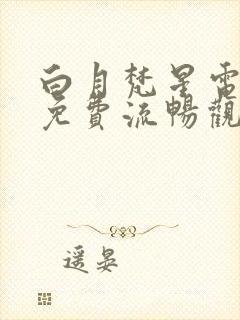 白月梵星電
免費流暢觀
遥晏